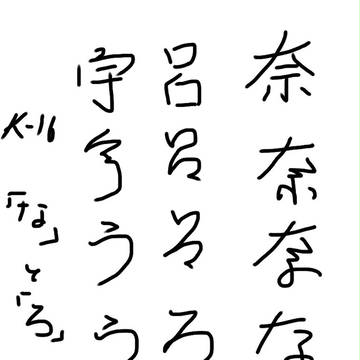 奈
奈
奈
な
呂
呂
ろ
ろ
宇
う
う
う
K-16
「な」
と
「ろ」